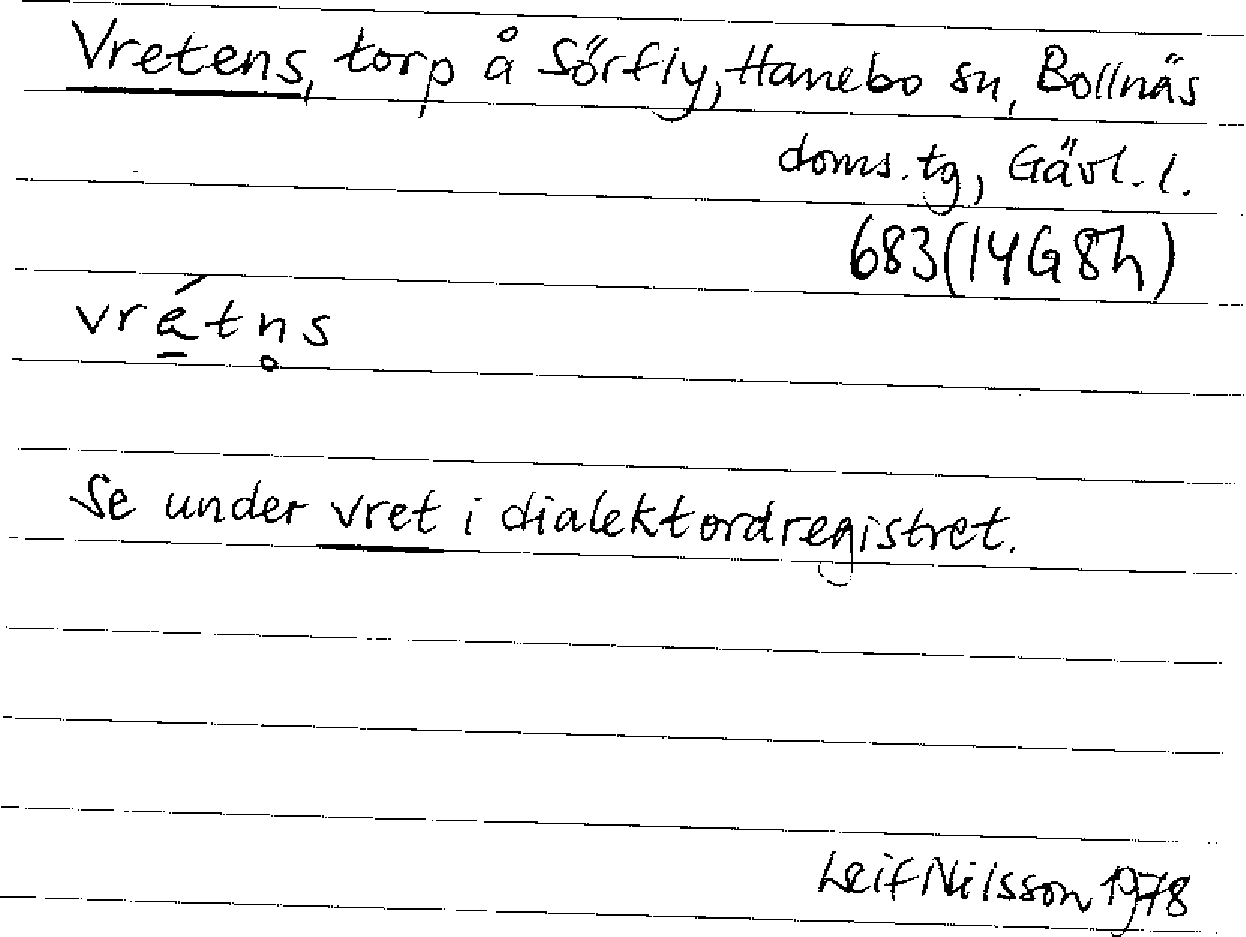 Vretens, torp å Sörfly, Hanebo sn, Bollnäs
doms. tg, Gävl. l.
683 (14G8h)
vrá̱tn̥s
Se under vret i dialektordregistret.
Leif Nilsson 1978